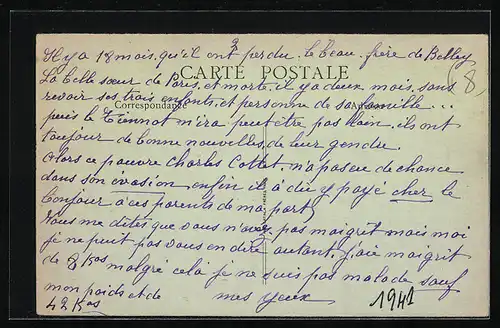 Il y a 18 mois qu'il ont perdu le beau frère de Belley
La belle sœur de Paris, et morte il y a deux mois, sans
CARTE POSTALE
8
revoir ses trois enfants et personne de sa famille...
Correspondance
puis le m'ira peut être pas loin, ils ont
toujour de bonne nouvelles, de leur gendre.
Alors ce pauvre Charles Collet, n'a pas eu de chance
dans son évasion, enfin il à dû y payé cher le
bonjour à ces parents de ma part
Vous me dites que vous n'avez pas maigrit mais moi
je ne puit pas vous en dire autant, j'aie maigrit
de 8 Kos malgré cela je ne suis pas malade sauf
mon poids et de mes yeux
42 Kos
1941